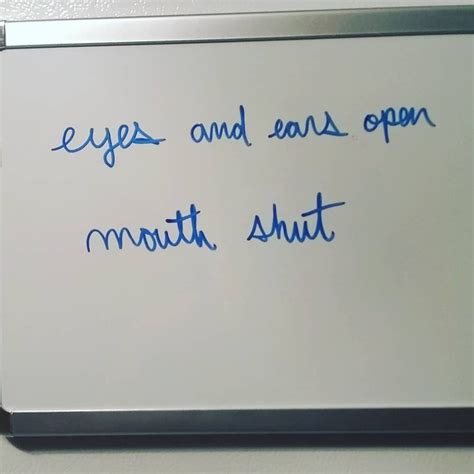 eyes and ears open
mouth shut